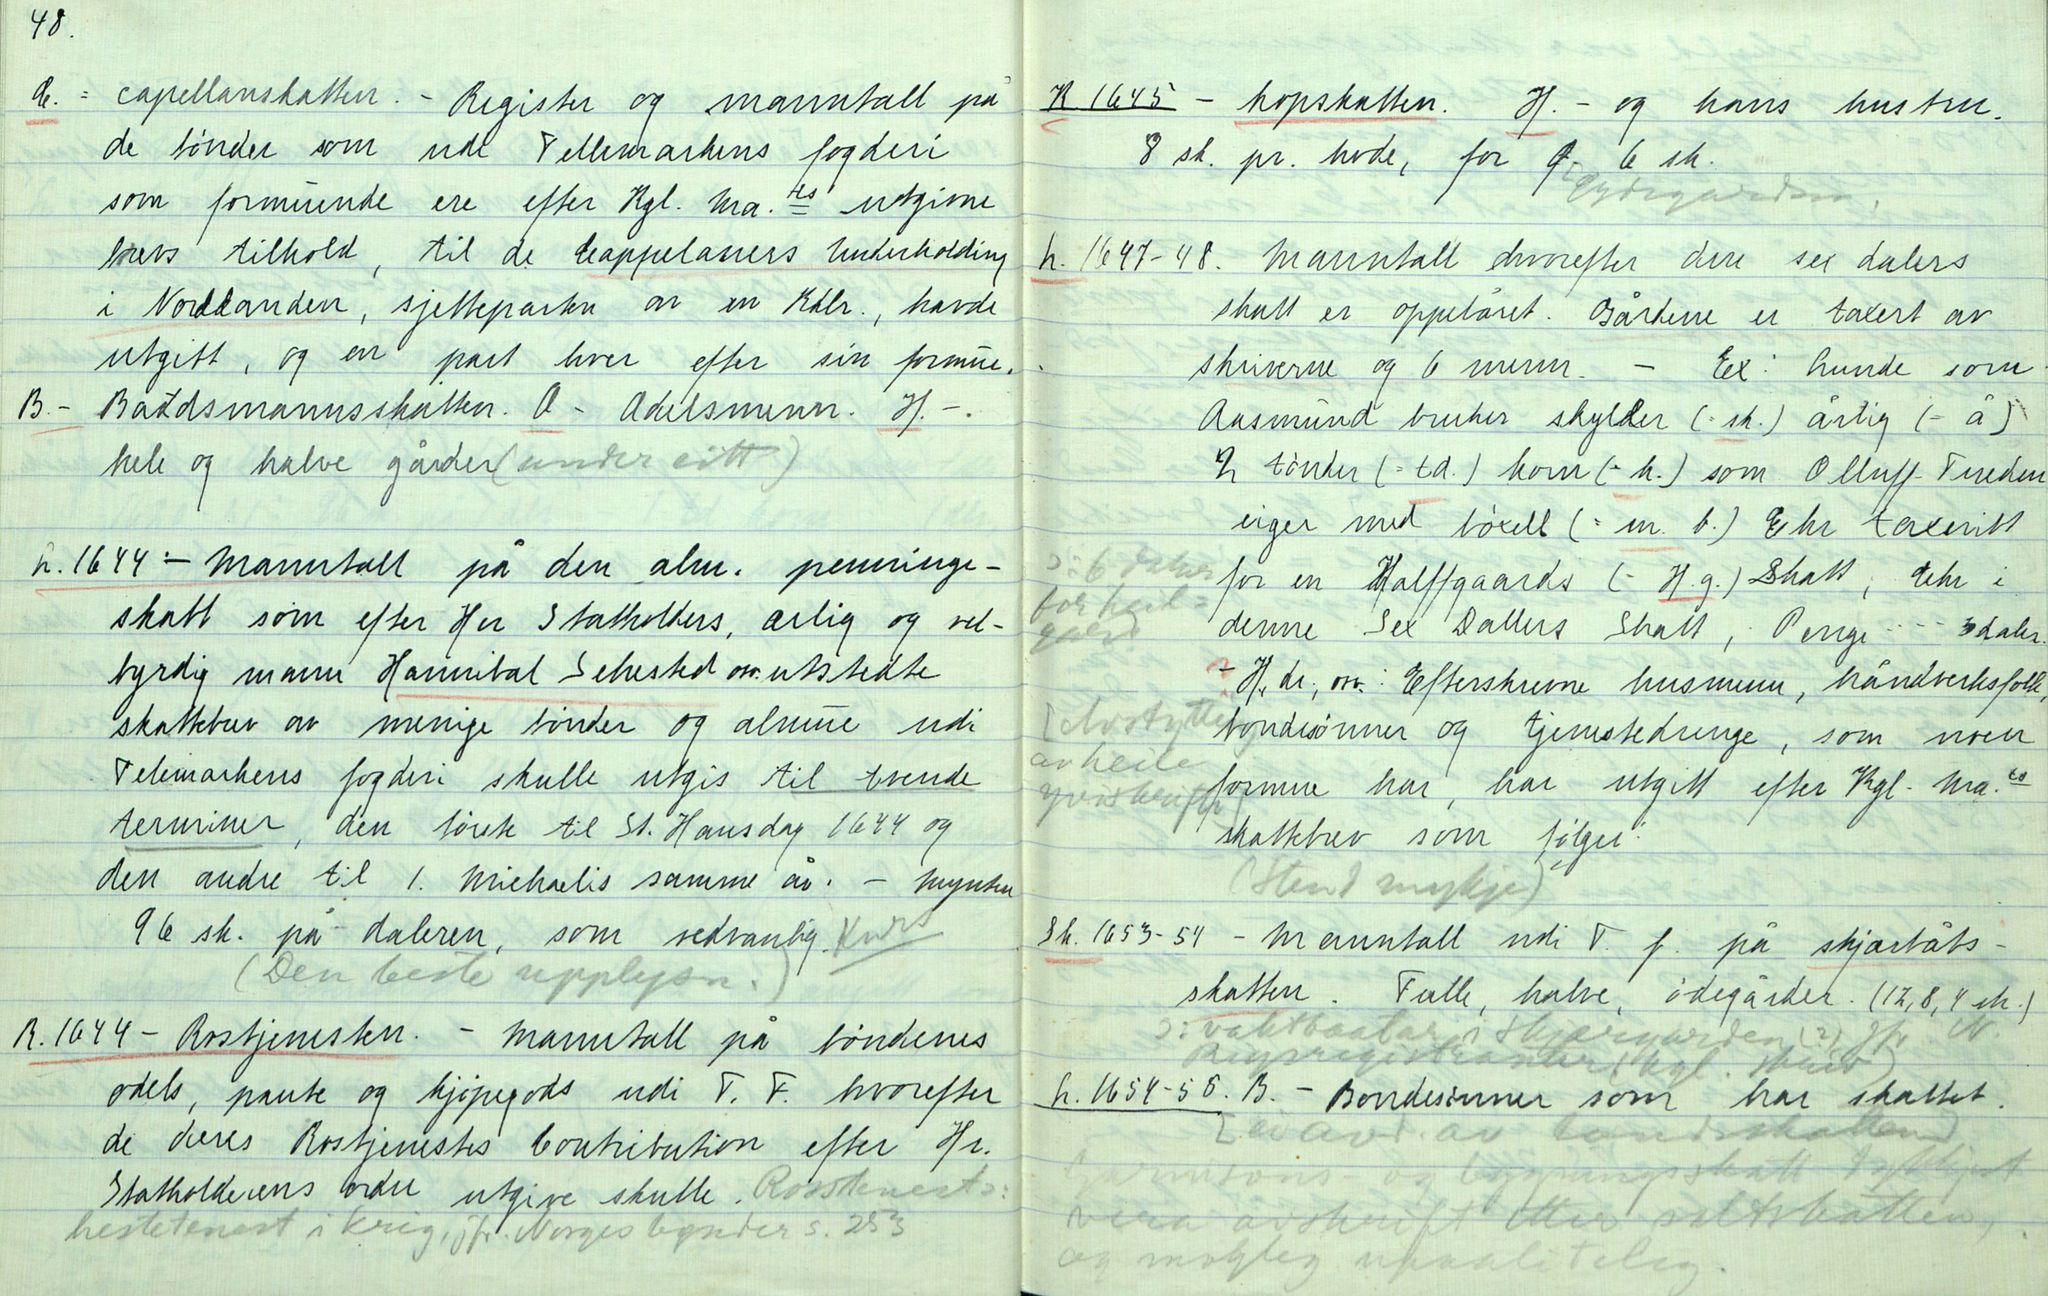 48.
C. = capellanskatten. - Register og manntall på
de bönder som udi Tellemarkens fogderi
som formüende ere efter Kgl. Ma.ts utgivne
brevs tilhold, til de Cappelaners Underholding
i Nordlanden, sjetteparten av en Rdlr., havde
utgitt, og en part hver efter sin formüe.
B. - Baadsmannsskatten. A - Adelsmenn. H. -.
hele og halve gårder (under eitt)
L. 1644 :- Manntall på den alm. penninge-
skatt som efter Her Statholders, ærlig og vel-
byrdig mann Hannibal Sehested osv. utstedte
skattebrev av menige bönder og almüe udi
Telemarkens fogderi skulle utgis til tvende
terminer, den förste til St. Hansdag 1644 og
den andre til 1. Michaelis samme år. - Mynten
96 sk. på daleren, som sedvanlig. Kurs
(Den beste upplysn.)
R. 1644 - Rostjenesten. - Manntall på böndenes
odels, pante og kjöpegods udi T. F. hvorefter
de deres Rostjenestes Contribution efter Hr.
Statholderens ordre utgive skulle. Rosstenest ɔ:
hestetenest i krig, jfr. Norges bønder s. 253
K 1645 - kopskatten. H. - og hans hustru.
8 sk. pr. hode, for Ø - 6 sk.
Øydegarden.
L. 1647-48. Manntall hvorefter den sex dalers
skatt er oppebåret. Gårdene er taxert av
skriverne og 6 menn. - Ex: Lunde som
Aasmund bruker skylder (= sk.) årlig (= å)
2 tönder (= td.) korn (= k.) som Olluff Tveden
eiger med böxell (= m. b.) Ehr taxeritt
ɔ: 6 dalar
for en Halffgaards (= H.g.) Skatt, Ehr i
for heil=
gard
denne Sex Dallers Skatt, Penge ---- 3 daler.
- H. dr., osv.: Efterskrevne husmenn, håndverksfolk,
bondesönner og tjenestedrenge, som noen
av heile
formue har, har utgitt efter Kgl. Ma.ts
yverskrifta]
skattebrev som fölger:
(Stend mykje)
Sk. 1653-54 - Manntall udi T. f. på skjærbåts-
skatten. Fulle, halve, ödegårder. (12, 8, 4 sk.)
ɔ: vaktbaatar i skjærgarden (?) jfr. N.
Rigsregistranter (kgl. skriv)
L. 1654-55. B. - Bondesönner som har skattet.
og bygningsskatt
vera avskrift etter skattskatten,
og mogleg upaaliteleg.